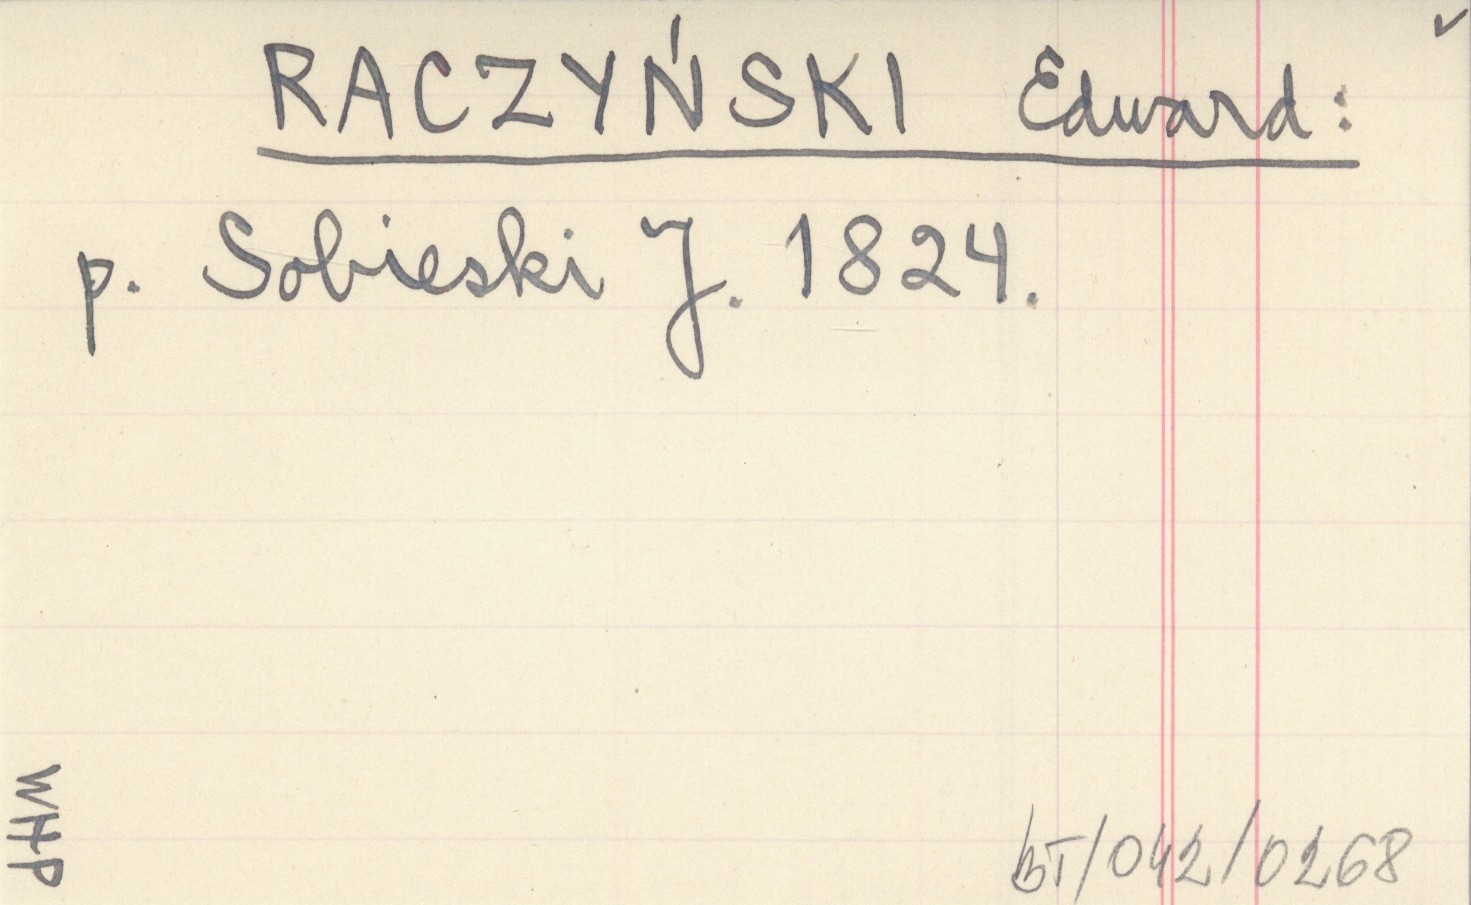 RACZYŃSKI Edward:
p. Sobieski J. 1824.
WHP
BT/042/0268